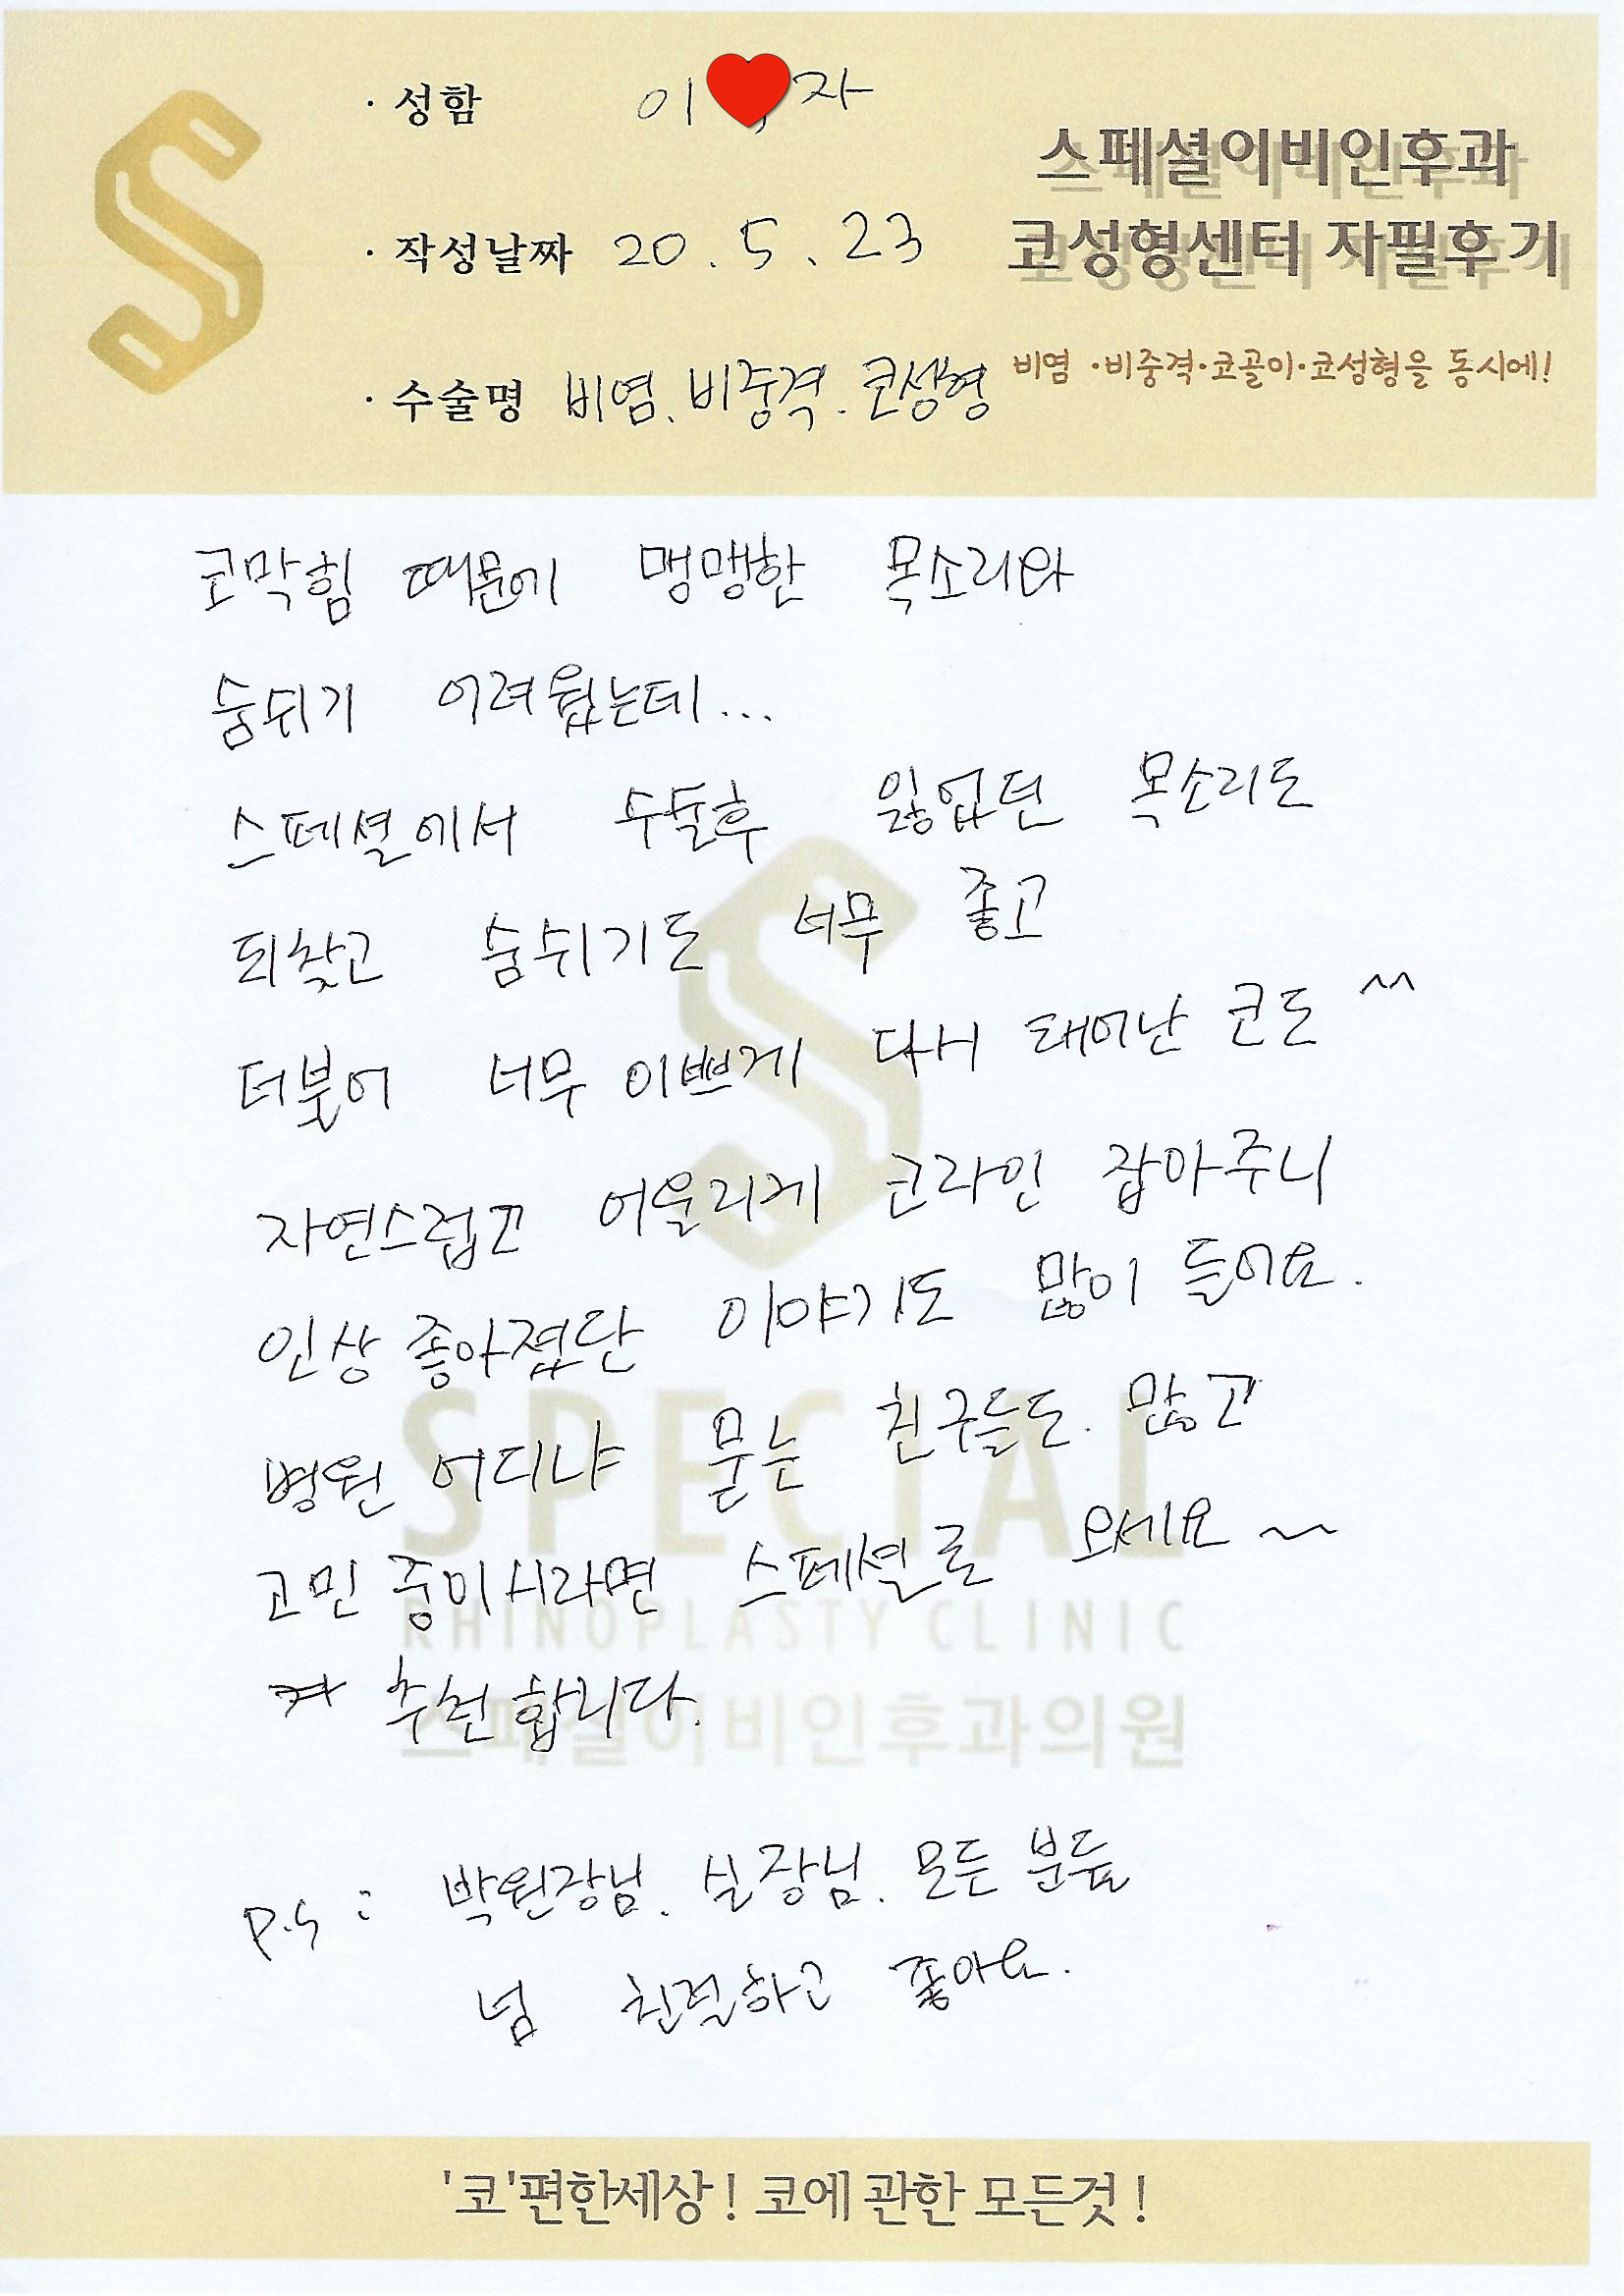 · 성함 이 자
· 작성날짜 20. 5. 23
· 수술명 비염. 비중격. 코성형
스페셜이비인후과
코성형센터 자필후기
비염 ·비중격·코골이·코성형을 동시에!
코막힘 때문에 맹맹한 목소리와
숨쉬기 어려웠는데...
스페셜에서 수술후 잃었던 목소리도
되찾고 숨쉬기도 너무 좋고
더불어 너무 이쁘게 다시 태어난 코도 ^^
자연스럽고 어울리게 코라인 잡아주니
인상 좋아졌단 이야기도 많이 들어요.
병원 어디냐 묻는 친구들도 많고
고민 중이시라면 스페셜로 오세요~~
추천합니다.
P.S : 박원장님. 실장님. 모든 분들
넘 친절하고 좋아요.
SPECIAL
RHINOPLASTY CLINIC
스페셜이비인후과의원
'코'편한세상! 코에 관한 모든것!